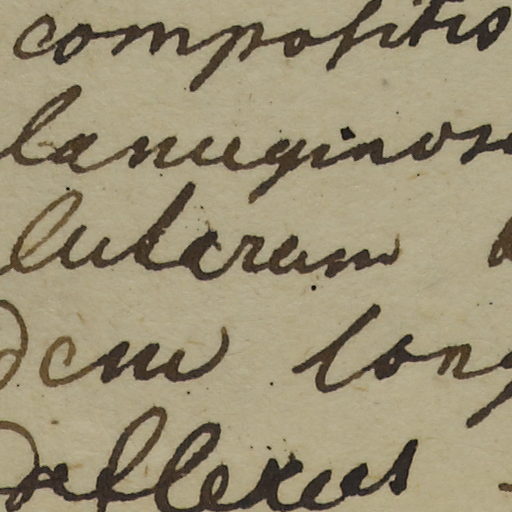 compositis
lanuginos
lularum
dem long
deflexus